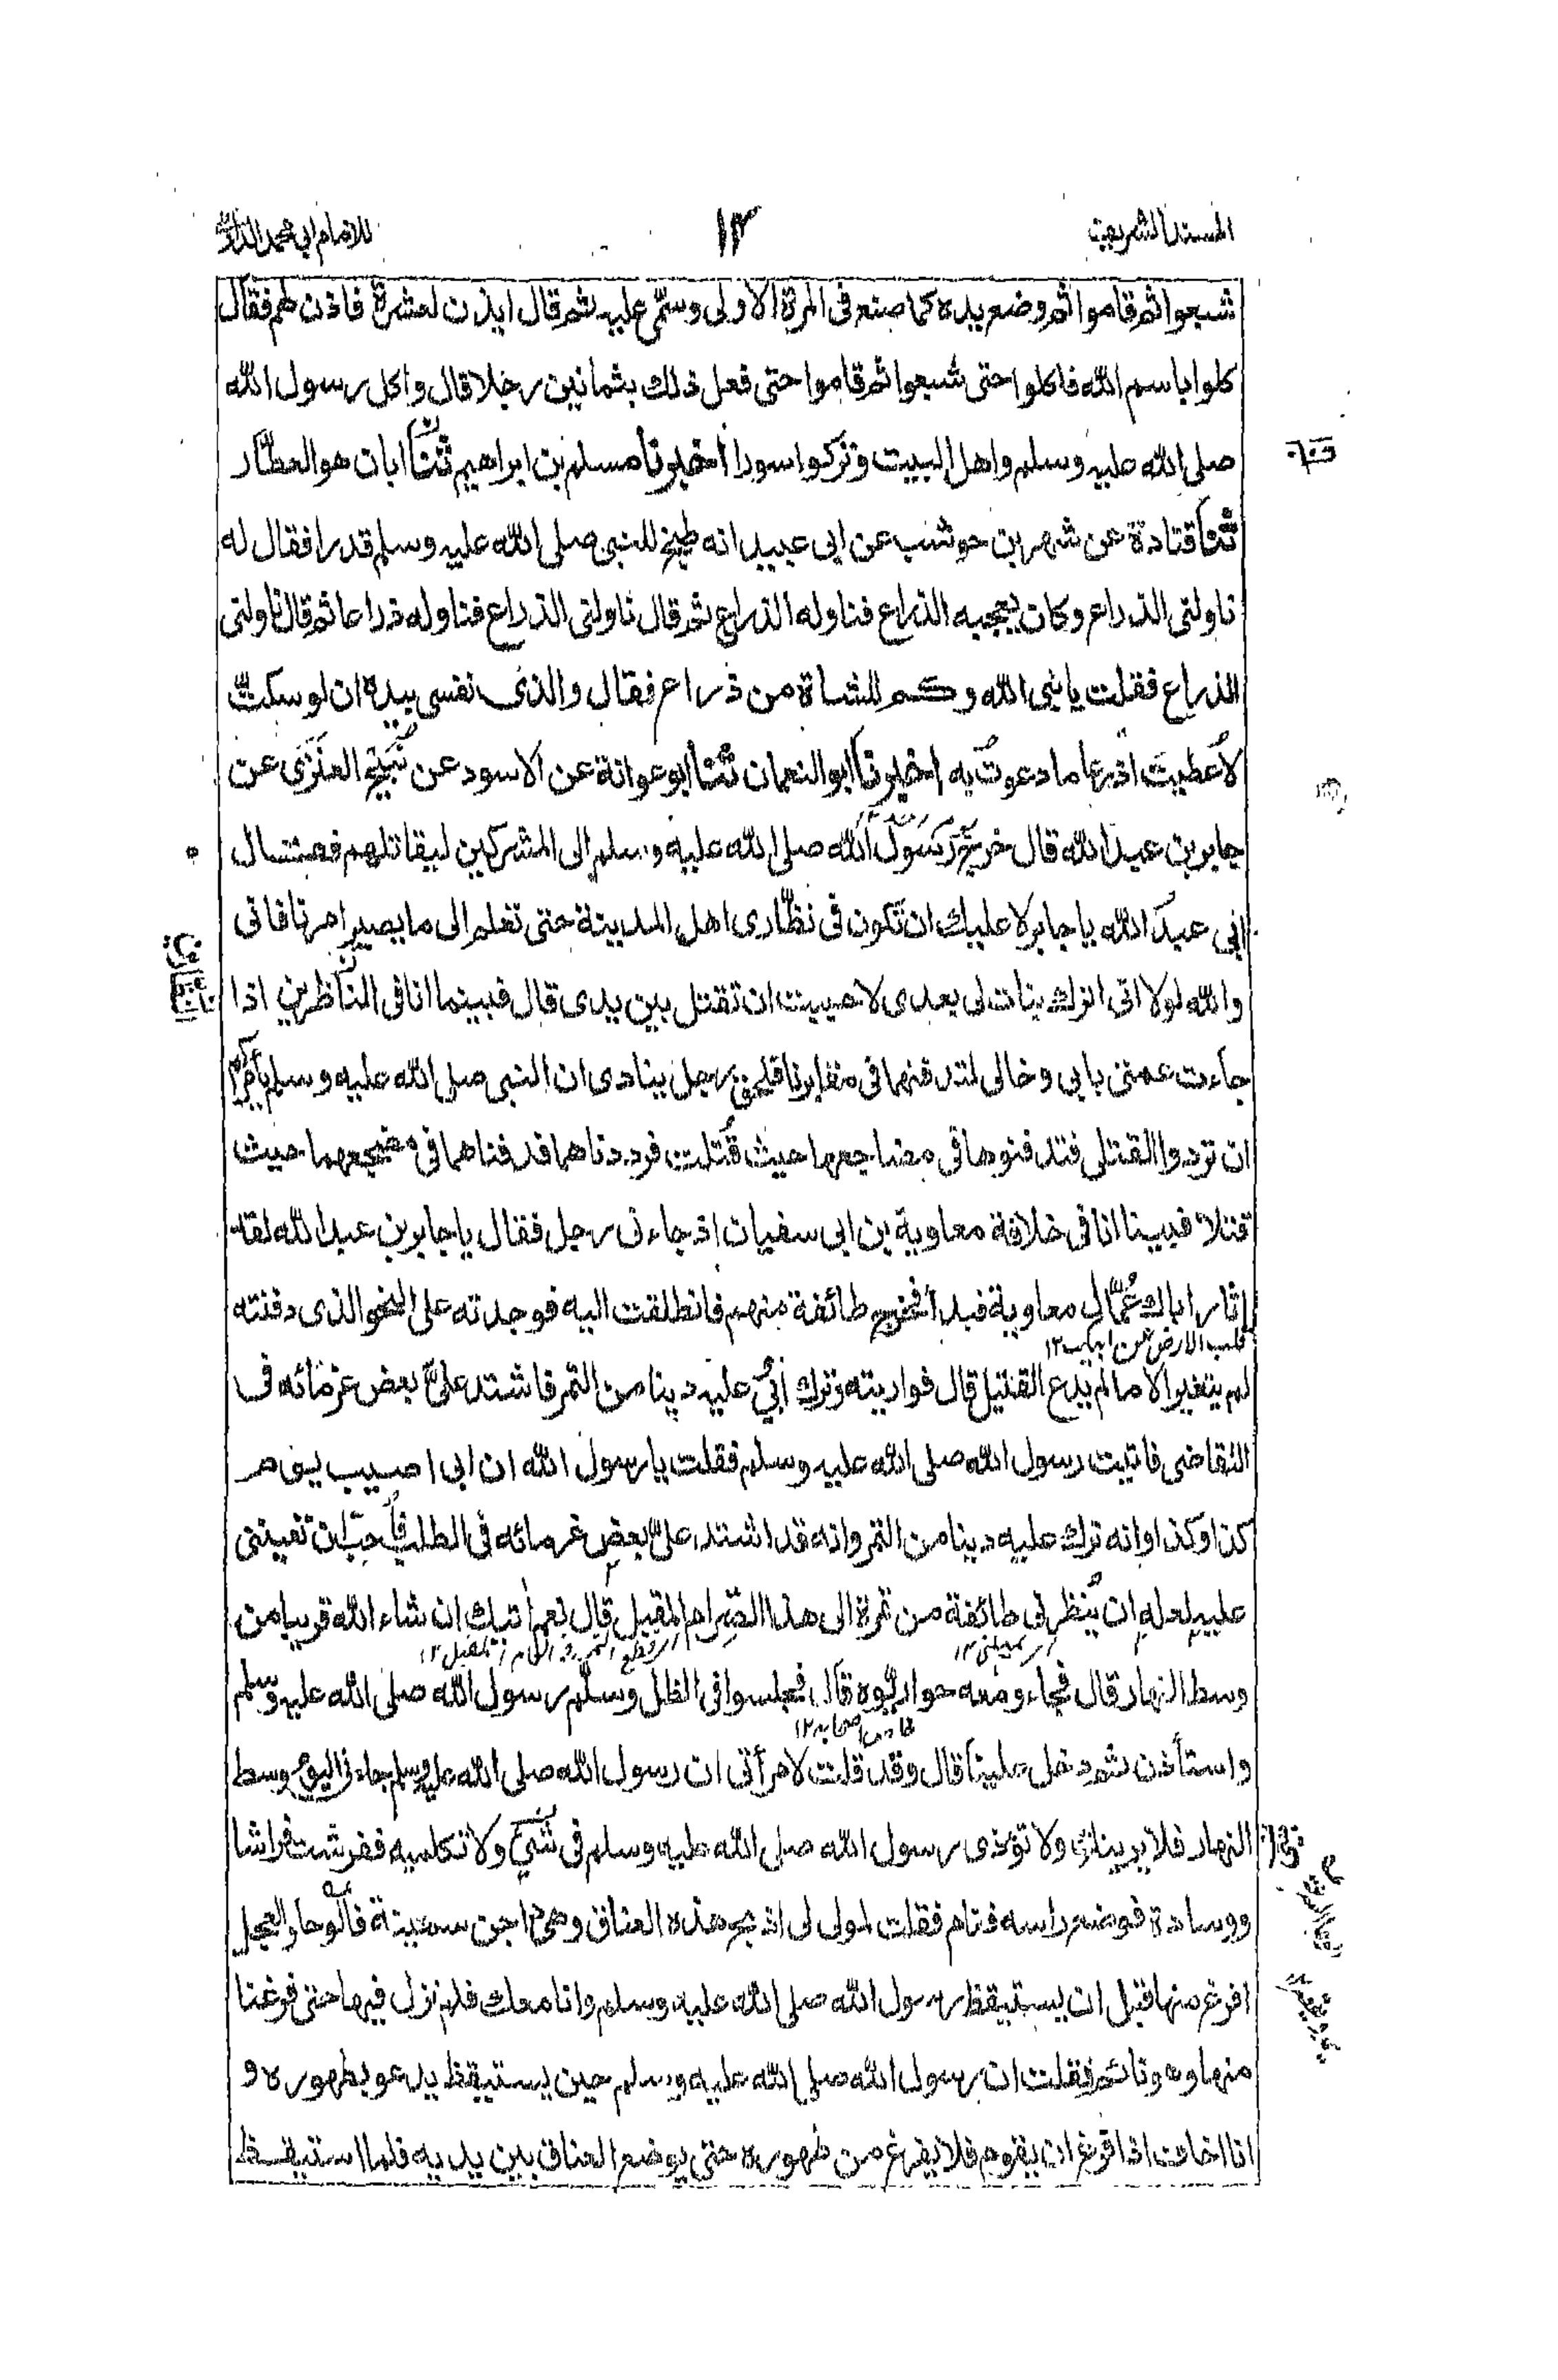 المسند الشريف
١٣
للامام ابي محمد الدارمي
شبعوا ثم قاموا ثم وضع يده كما صنع فى المرة الاولى وسمّى عليه ثم قال ايذن لعشرة فاذن لهم فقال
كلوا باسم الله فاكلوا حتى شبعوا ثم قاموا حتى فعل ذلك بثمانين رجلا قال واكل رسول الله
صلى الله عليه وسلم واهل البيت وتركوا سورا اخبرنا مسلم بن ابراهيم ثنا ابان هو العطّار
ثنا قتادة عن شهر بن حوشب عن ابى عبيد انه طبخ للنبى صلى الله عليه وسلم قدرا فقال له
ناولنى الذراع وكان يعجبه الذراع فناوله الذراع ثم قال ناولنى الذراع فناوله ذراعا ثم قال ناولنى
الذراع فقلت يا نبى الله وكم للشاة من ذراع فقال والذى نفسى بيده ان لو سكتّ
لاُعطيتَ اذرعا ما دعوتُ به اخبرنا ابو النعمان ثنا ابو عوانة عن الاسود عن نُبَيح العنزى عن
جابر بن عبد الله قال خرج رسول الله صلى الله عليه وسلم الى المشركين ليقاتلهم فقال
ابى عبدُ الله يا جابر لا عليك ان تكون فى نظّارى اهل المدينة حتى تعلم الى ما يصير امرنا فانى
والله لولا انى اترك بنات لى بعدى لاحببت ان تقتل بين يدى قال فبينما انا فى النّاظرين اذا
جاءت عمتى بابى وخالى لتدفنهما فى مقابرنا فلحق رجل ينادى ان النبى صلى الله عليه وسلم يأمركم
ان تردوا القتلى فتدفنوها فى مضاجعها حيث قُتلت فرددناهما فدفناهما فى مضجعهما حيث
قتلا فبينا انا فى خلافة معاوية بن ابى سفيان اذ جاءنى رجل فقال يا جابر بن عبد الله لقد
اثار اباك عُمّال معاوية فبدا فخرج طائفة منهم فانطلقت اليه فوجدته على النحو الذى دفنته
قلب الارض عن ابيك ١٢
لم يتغير الا ما لم يدع القتيل قال فواريته وترك ابى عليه دينا من التمر فاشتد علىّ بعض غرمائه فى
التقاضى فاتيت رسول الله صلى الله عليه وسلم فقلت يا رسول الله ان ابى اصيب يوم
كذا وكذا وانه ترك عليه دينا من التمر وانه قد اشتد علىّ بعض غرمائه فى الطلب فاُحبّ ان تعيننى
عليه لعله ان يُنظرنى طائفة من تمره الى هذا الصّرام المقبل قال نعم اتيك ان شاء الله قريبا من
وسط النهار قال فجاء ومعه حواريّوه قال فجلسوا فى الظل وسلّم رسول الله صلى الله عليه وسلم
واستأذن ثم دخل علينا قال وقد قلت لامرأتى ان رسول الله صلى الله عليه وسلم جاءنى اليوم وسط
النهار فلا يرينّك ولا تؤذى رسول الله صلى الله عليه وسلم فى شىء ولا تكلميه ففرشت فراشا
ووسادة فوضع راسه فنام فقلت لمولى لى اذبح هذه العناق وهى داجن سمينة فالوحا والعجل
افرغ منها قبل ان يستيقظ رسول الله صلى الله عليه وسلم وانا معك فلم نزل فيها حتى فرغنا
منها وهو نائم فقلت ان رسول الله صلى الله عليه وسلم حين يستيقظ يدعو بطهوره و
انا اخاف اذا فرغ ان يقوم فلا يفرغ من طهوره حتى يوضع العناق بين يديه فلما استيقظ